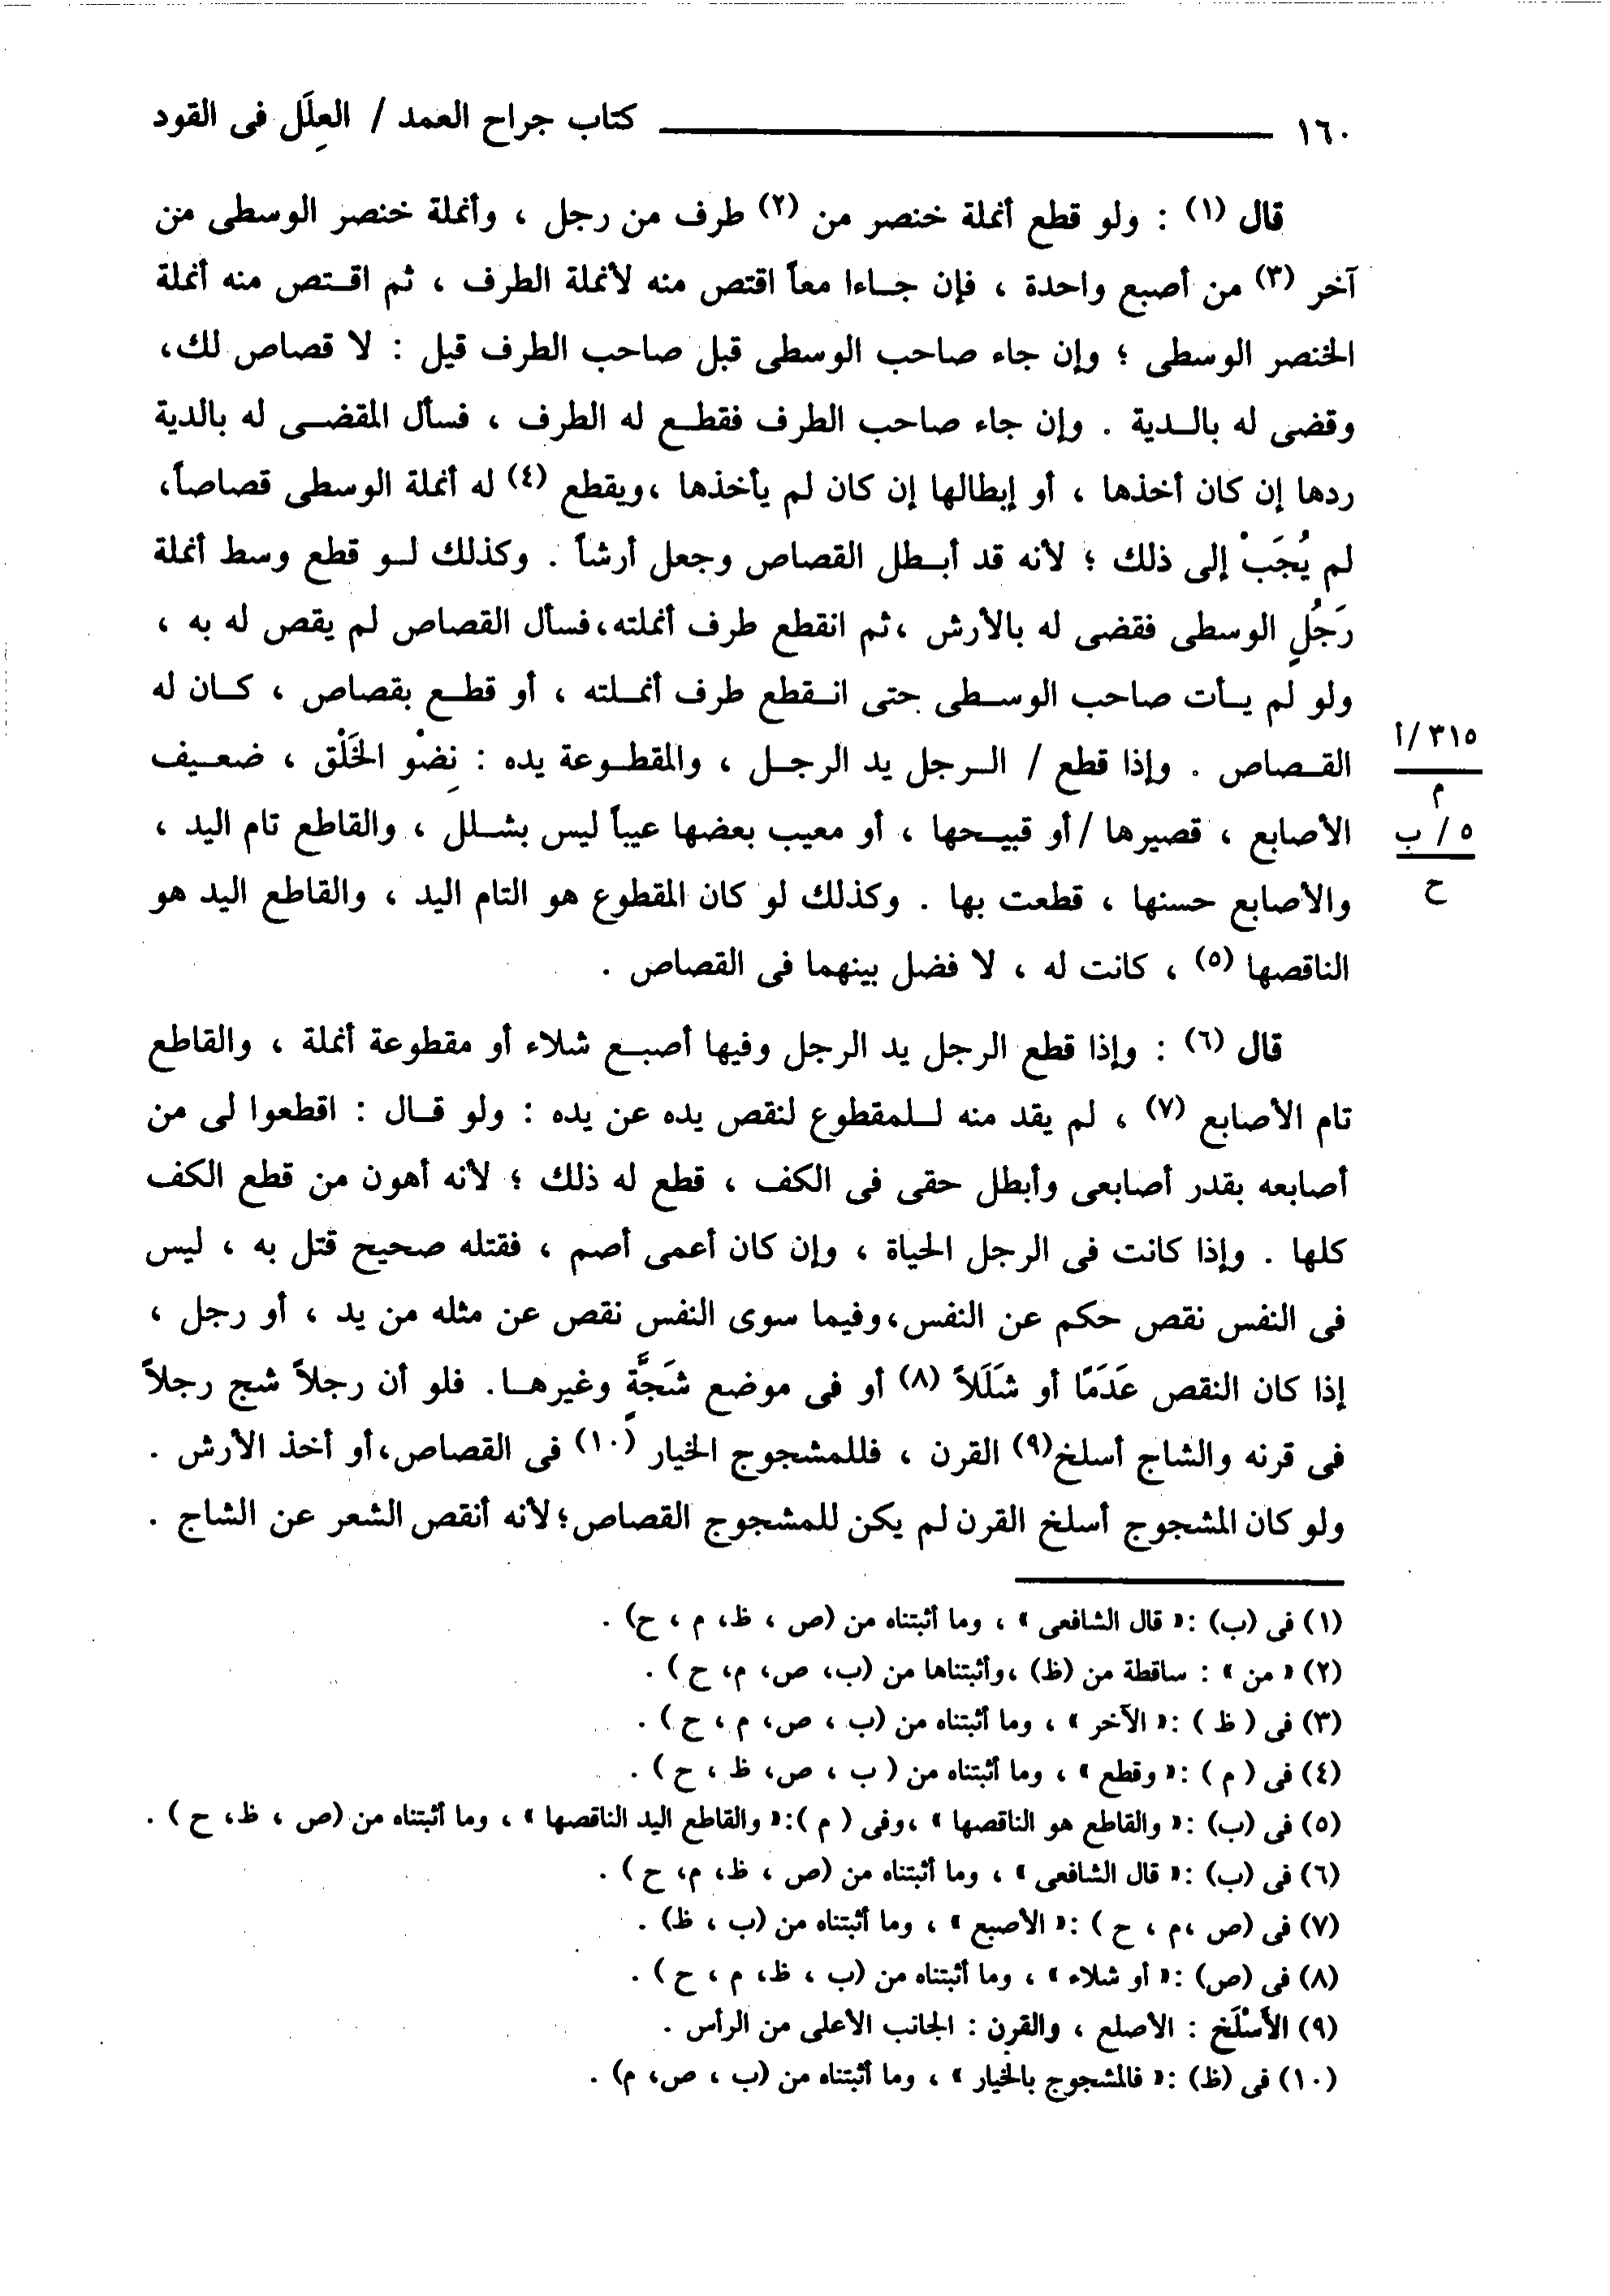 ١٦٠ كتاب جراح العمد / العِلَل فى القود
قال (١) : ولو قطع أنملة خنصر من (٢) طرف من رجل ، وأنملة خنصر الوسطى من
آخر (٣) من أصبع واحدة ، فإن جاءا معاً اقتص منه لأنملة الطرف ، ثم اقتص منه أنملة
الخنصر الوسطى ؛ وإن جاء صاحب الوسطى قبل صاحب الطرف قيل : لا قصاص لك،
وقضى له بالدية . وإن جاء صاحب الطرف فقطع له الطرف ، فسأل المقضى له بالدية
ردها إن كان أخذها ، أو إبطالها إن كان لم يأخذها ،ويقطع (٤) له أنملة الوسطى قصاصاً،
لم يُجَبْ إلى ذلك ؛ لأنه قد أبطل القصاص وجعل أرشاً . وكذلك لو قطع وسط أنملة
رَجُلٍ الوسطى فقضى له بالأرش ،ثم انقطع طرف أنملته،فسأل القصاص لم يقص له به ،
ولو لم يأت صاحب الوسطى حتى انقطع طرف أنملته ، أو قطع بقصاص ، كان له
القصاص . وإذا قطع / الرجل يد الرجل ، والمقطوعة يده : نِضْو الخَلْق ، ضعيف
٣١٥/أ
م
الأصابع ، قصيرها / أو قبيحها ، أو معيب بعضها عيباً ليس بشلل ، والقاطع تام اليد ،
٥/ ب
ح
والأصابع حسنها ، قطعت بها . وكذلك لو كان المقطوع هو التام اليد ، والقاطع اليد هو
الناقصها (٥) ، كانت له ، لا فضل بينهما فى القصاص .
قال (٦) : وإذا قطع الرجل يد الرجل وفيها أصبع شلاء أو مقطوعة أنملة ، والقاطع
تام الأصابع (٧) ، لم يقد منه للمقطوع لنقص يده عن يده : ولو قال : اقطعوا لى من
أصابعه بقدر أصابعى وأبطل حقى فى الكف ، قطع له ذلك ؛ لأنه أهون من قطع الكف
كلها . وإذا كانت فى الرجل الحياة ، وإن كان أعمى أصم ، فقتله صحيح قتل به ، ليس
فى النفس نقص حكم عن النفس،وفيما سوى النفس نقص عن مثله من يد ، أو رجل ،
إذا كان النقص عَدَمًا أو شَلَلاً (٨) أو فى موضع شَجَّةٍ وغيرها. فلو أن رجلاً شج رجلاً
فى قرنه والشاج أسلخ(٩) القرن ، فللمشجوج الخيار (١٠) فى القصاص،أو أخذ الأرش .
ولو كان المشجوج أسلخ القرن لم يكن للمشجوج القصاص؛لأنه أنقص الشعر عن الشاج .
(١) فى (ب) :« قال الشافعى » ، وما أثبتناه من (ص ، ظ، م ، ح) .
(٢) « من » : ساقطة من (ظ) ،وأثبتناها من (ب، ص، م، ح ) .
(٣) فى ( ظ ) :« الآخر » ، وما أثبتناه من (ب ، ص، م ، ح ) .
(٤) فى ( م ) :« وقطع » ، وما أثبتناه من ( ب ، ص، ظ ، ح ) .
(٥) فى (ب) :« والقاطع هو الناقصها » ،وفى ( م ):« والقاطع اليد الناقصها » ، وما أثبتناه من (ص ، ظ، ح ) .
(٦) فى (ب) :« قال الشافعى » ، وما أثبتناه من (ص ، ظ، م، ح ) .
(٧) فى (ص ،م ، ح ) :« الأصبع » ، وما أثبتناه من (ب ، ظ) .
(٨) فى (ص) :« أو شلاء » ، وما أثبتناه من (ب ، ظ، م ، ح ) .
(٩) الأَسْلَخ : الأصلع ، والقرن : الجانب الأعلى من الرأس .
(١٠) فى (ظ) :« فالمشجوج بالخيار » ، وما أثبتناه من (ب ، ص، م) .